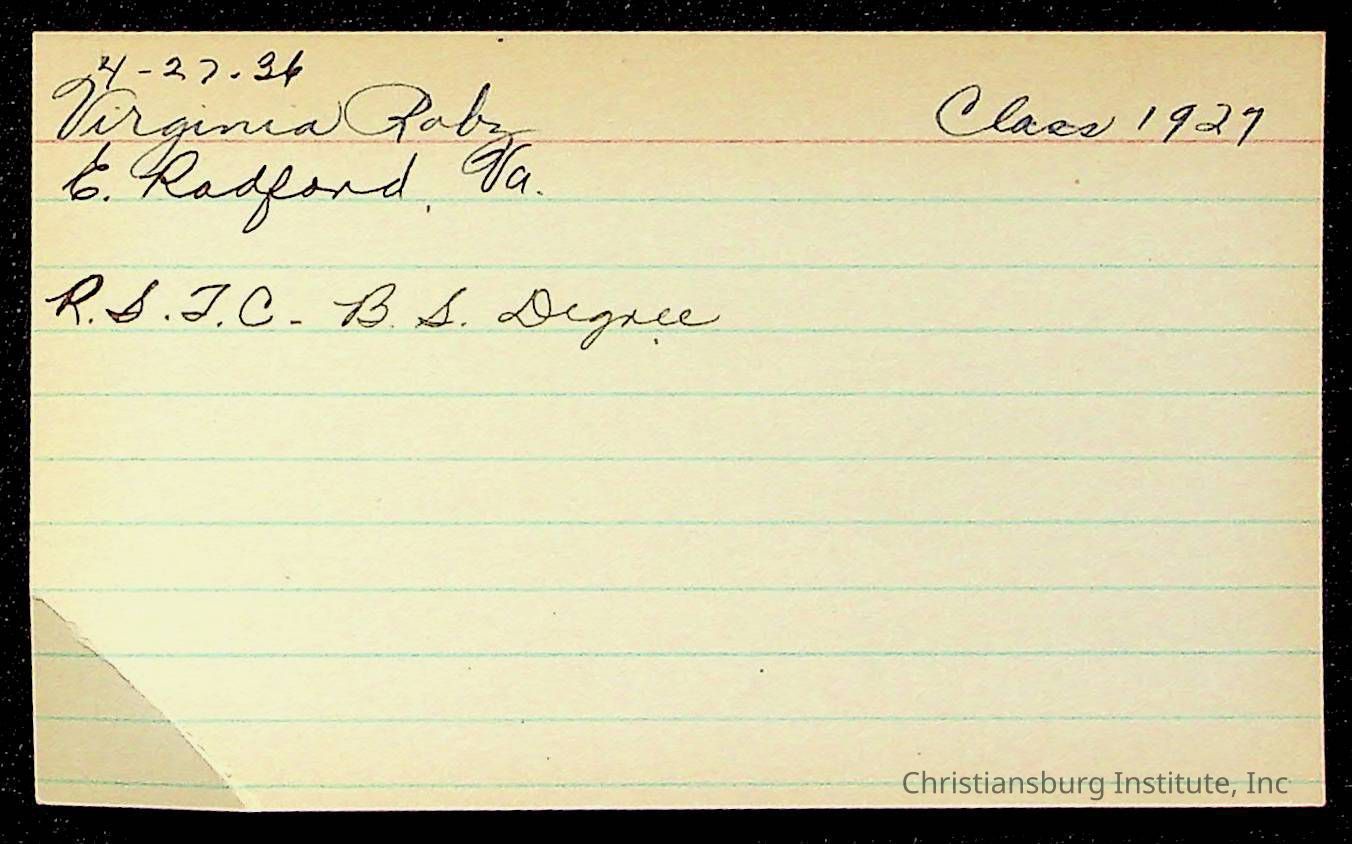 4-27-36
Virginia Roby
Class 1927
E. Radford, Va.
R.S.T.C. - B.S. Degree
Christiansburg Institute, Inc